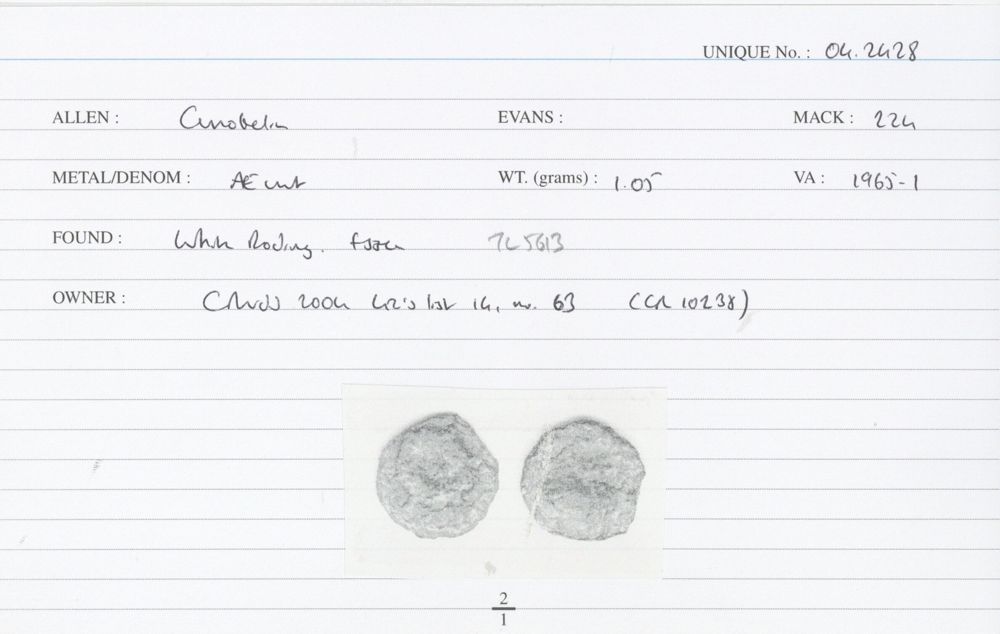 UNIQUE No. : 04.2428
ALLEN : Cunobelin EVANS : MACK : 224
METAL/DENOM : Æ unit WT. (grams) : 1.05 VA : 1965-1
FOUND : White Roding. Essex TL 5613
OWNER : 2004 list 14, no. 63 (CR 10238)
2
1